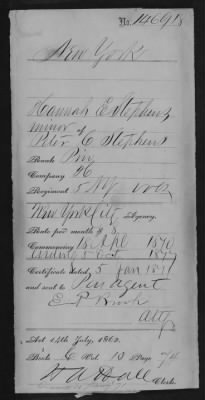 No. 146918
New York
Hannah E Stephens
minor of
Peter C Stephens
Rank Priv
Company
Regiment 5 NY vols
New York City Agency.
Rate per month $ 8.
Commencing 18 Apl 1870
5 Oct 1877
Certificate dated 5 Jan 1871
and sent to Pen Agent
E. P.
Atty
Act 14th July, 1862.
Book Vol. Page
Clerk.